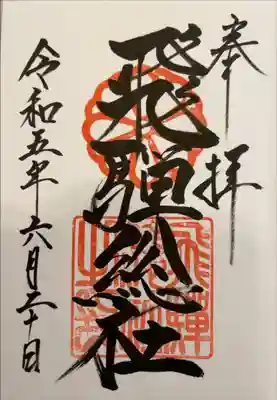 奉拝
飛騨総社
令和五年六月二十日